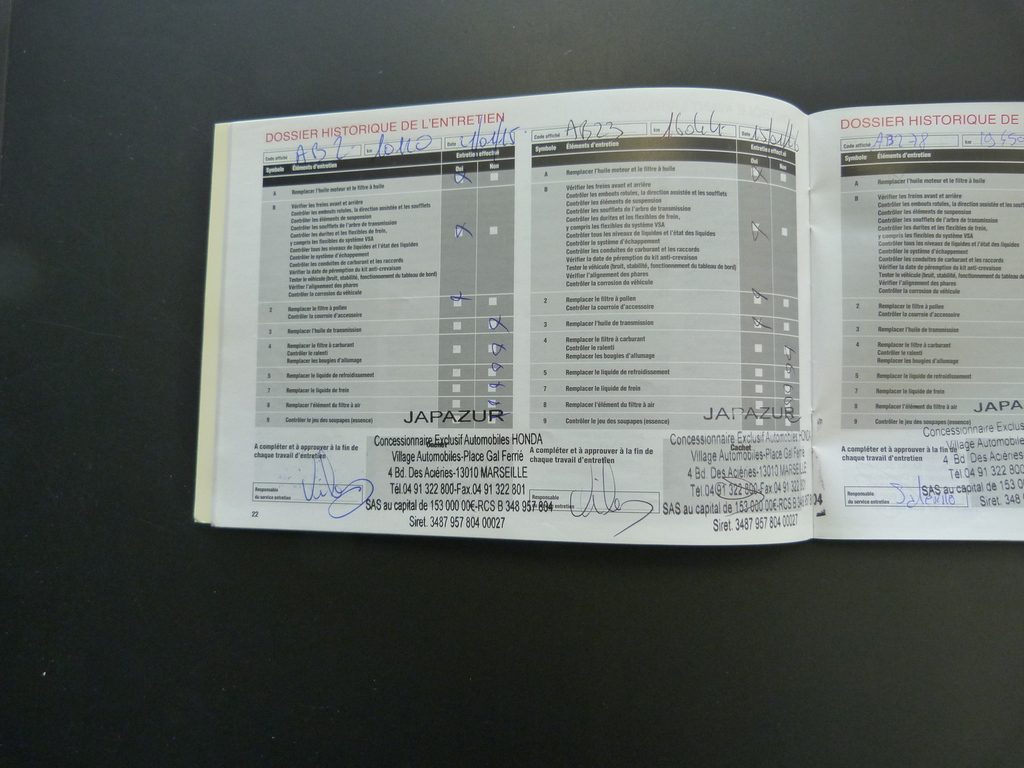 DOSSIER HISTORIQUE DE L'ENTRETIEN
Code affiché AB2 km 10110 Date
Symbole Éléments d'entretien Entretien effectué
Oui Non
A Remplacer l'huile moteur et le filtre à huile
B Vérifier les freins avant et arrière
Contrôler les embouts rotules, la direction assistée et les soufflets
Contrôler les éléments de suspension
Contrôler les soufflets de l'arbre de transmission
Contrôler les durites et les flexibles de frein,
y compris les flexibles du système VSA
Contrôler tous les niveaux de liquides et l'état des liquides
Contrôler le système d'échappement
Contrôler les conduites de carburant et les raccords
Vérifier la date de péremption du kit anti-crevaison
Tester le véhicule (bruit, stabilité, fonctionnement du tableau de bord)
Vérifier l'alignement des phares
Contrôler la corrosion du véhicule
2 Remplacer le filtre à pollen
Contrôler la courroie d'accessoire
3 Remplacer l'huile de transmission
4 Remplacer le filtre à carburant
Contrôler le ralenti
Remplacer les bougies d'allumage
5 Remplacer le liquide de refroidissement
7 Remplacer le liquide de frein
8 Remplacer l'élément du filtre à air
9 Contrôler le jeu des soupapes (essence)
A compléter et à approuver à la fin de
chaque travail d'entretien
Cachet
JAPAZUR
Concessionnaire Exclusif Automobiles HONDA
Village Automobiles-Place Gal Ferrié
4 Bd. Des Aciéries-13010 MARSEILLE
Tél.04 91 322 800-Fax.04 91 322 801
SAS au capital de 153 000 00€-RCS B 348 957 804
Siret. 3487 957 804 00027
Responsable
du service entretien
22
Code affiché AB23 km 16044 Date
Symbole Éléments d'entretien Entretien effectué
Oui Non
A Remplacer l'huile moteur et le filtre à huile
B Vérifier les freins avant et arrière
Contrôler les embouts rotules, la direction assistée et les soufflets
Contrôler les éléments de suspension
Contrôler les soufflets de l'arbre de transmission
Contrôler les durites et les flexibles de frein,
y compris les flexibles du système VSA
Contrôler tous les niveaux de liquides et l'état des liquides
Contrôler le système d'échappement
Contrôler les conduites de carburant et les raccords
Vérifier la date de péremption du kit anti-crevaison
Tester le véhicule (bruit, stabilité, fonctionnement du tableau de bord)
Vérifier l'alignement des phares
Contrôler la corrosion du véhicule
2 Remplacer le filtre à pollen
Contrôler la courroie d'accessoire
3 Remplacer l'huile de transmission
4 Remplacer le filtre à carburant
Contrôler le ralenti
Remplacer les bougies d'allumage
5 Remplacer le liquide de refroidissement
7 Remplacer le liquide de frein
8 Remplacer l'élément du filtre à air
9 Contrôler le jeu des soupapes (essence)
A compléter et à approuver à la fin de
chaque travail d'entretien
Cachet
JAPAZUR
Concessionnaire Exclusif Automobiles HONDA
Village Automobiles-Place Gal Ferrié
4 Bd. Des Aciéries-13010 MARSEILLE
Tél.04 91 322 800-Fax.04 91 322 801
SAS au capital de 153 000 00€-RCS B 348 957 804
Siret. 3487 957 804 00027
DOSSIER HISTORIQUE DE
Code affiché AB278 km
Symbole Éléments d'entretien
A Remplacer l'huile moteur et le filtre à huile
B Vérifier les freins avant et arrière
Contrôler les embouts rotules, la direction assistée
Contrôler les éléments de suspension
Contrôler les soufflets de l'arbre de transmission
Contrôler les durites et les flexibles de frein,
y compris les flexibles du système VSA
Contrôler tous les niveaux de liquides et l'état des
Contrôler le système d'échappement
Contrôler les conduites de carburant et les raccords
Vérifier la date de péremption du kit anti-crevaison
Tester le véhicule (bruit, stabilité, fonctionnement
Vérifier l'alignement des phares
Contrôler la corrosion du véhicule
2 Remplacer le filtre à pollen
Contrôler la courroie d'accessoire
3 Remplacer l'huile de transmission
4 Remplacer le filtre à carburant
Contrôler le ralenti
Remplacer les bougies d'allumage
5 Remplacer le liquide de refroidissement
7 Remplacer le liquide de frein
8 Remplacer l'élément du filtre à air
9 Contrôler le jeu des soupapes (essence)
A compléter et à approuver à la fin de
chaque travail d'entretien
JAPA
Concessionnaire Exclus
Village Automobiles
4 Bd. Des Aciéries
Tél.04 91 322 800
SAS au capital de 153 00
Siret. 348
Responsable
du service entretien